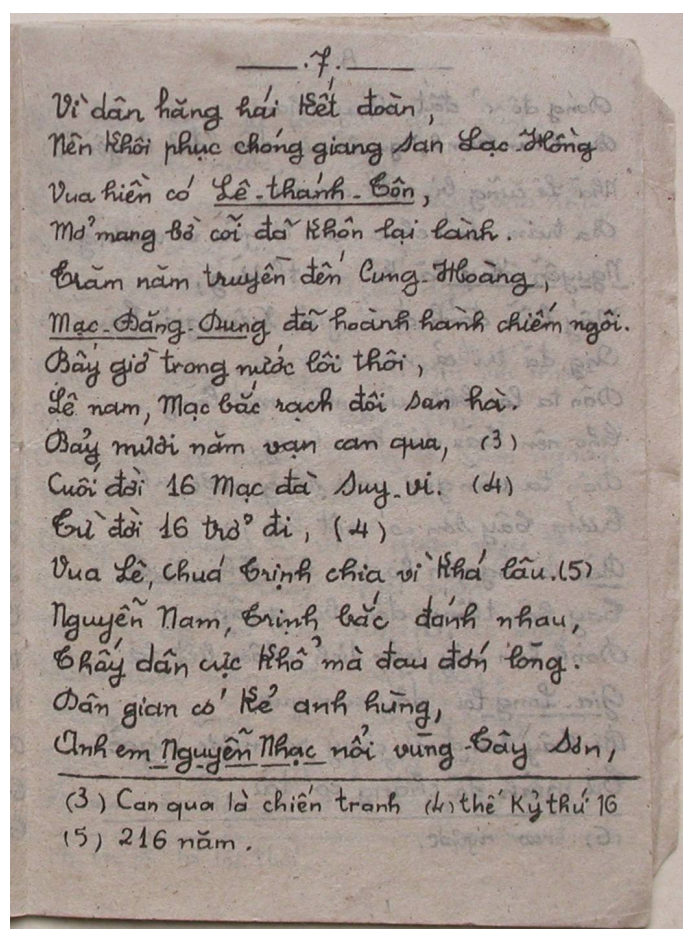 .7.
Vì dân hăng hái kết đoàn,
Nên khôi phục chóng giang san Lạc-Hồng
Vua hiền có Lê-thánh-Tôn,
Mở mang bờ cõi đã khôn lại lành.
Trăm năm truyền đến Cung-Hoàng,
Mạc-Đăng-Dung đã hoành hành chiếm ngôi.
Bấy giờ trong nước lôi thôi,
Lê nam, Mạc bắc rạch đôi san hà.
Bảy mươi năm vạn can qua, (3)
Cuối đời 16 Mạc đà suy-vi. (4)
Từ đời 16 trở đi, (4)
Vua Lê, chúa Trịnh chia vì khá lâu.(5)
Nguyễn Nam, Trịnh bắc đánh nhau,
Thấy dân cực khổ mà đau đớn lòng.
Dân gian có kẻ anh hùng,
Anh em Nguyễn Nhạc nổi vùng Tây Sơn,
(3) Can qua là chiến tranh (4) thế kỷ thứ 16
(5) 216 năm.